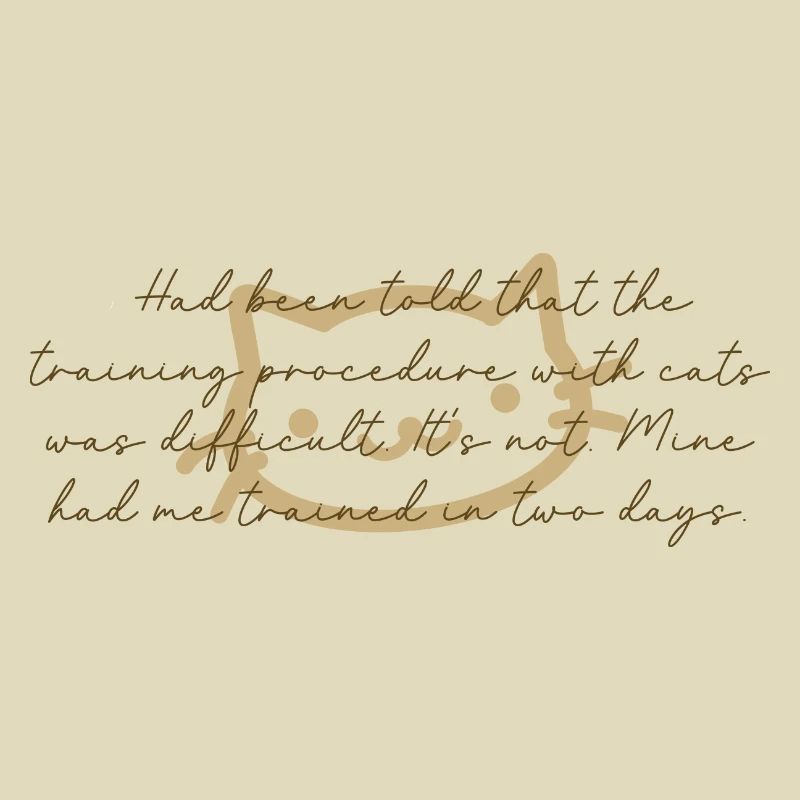 Had been told that the
training procedure with cats
was difficult. It's not. Mine
had me trained in two days.